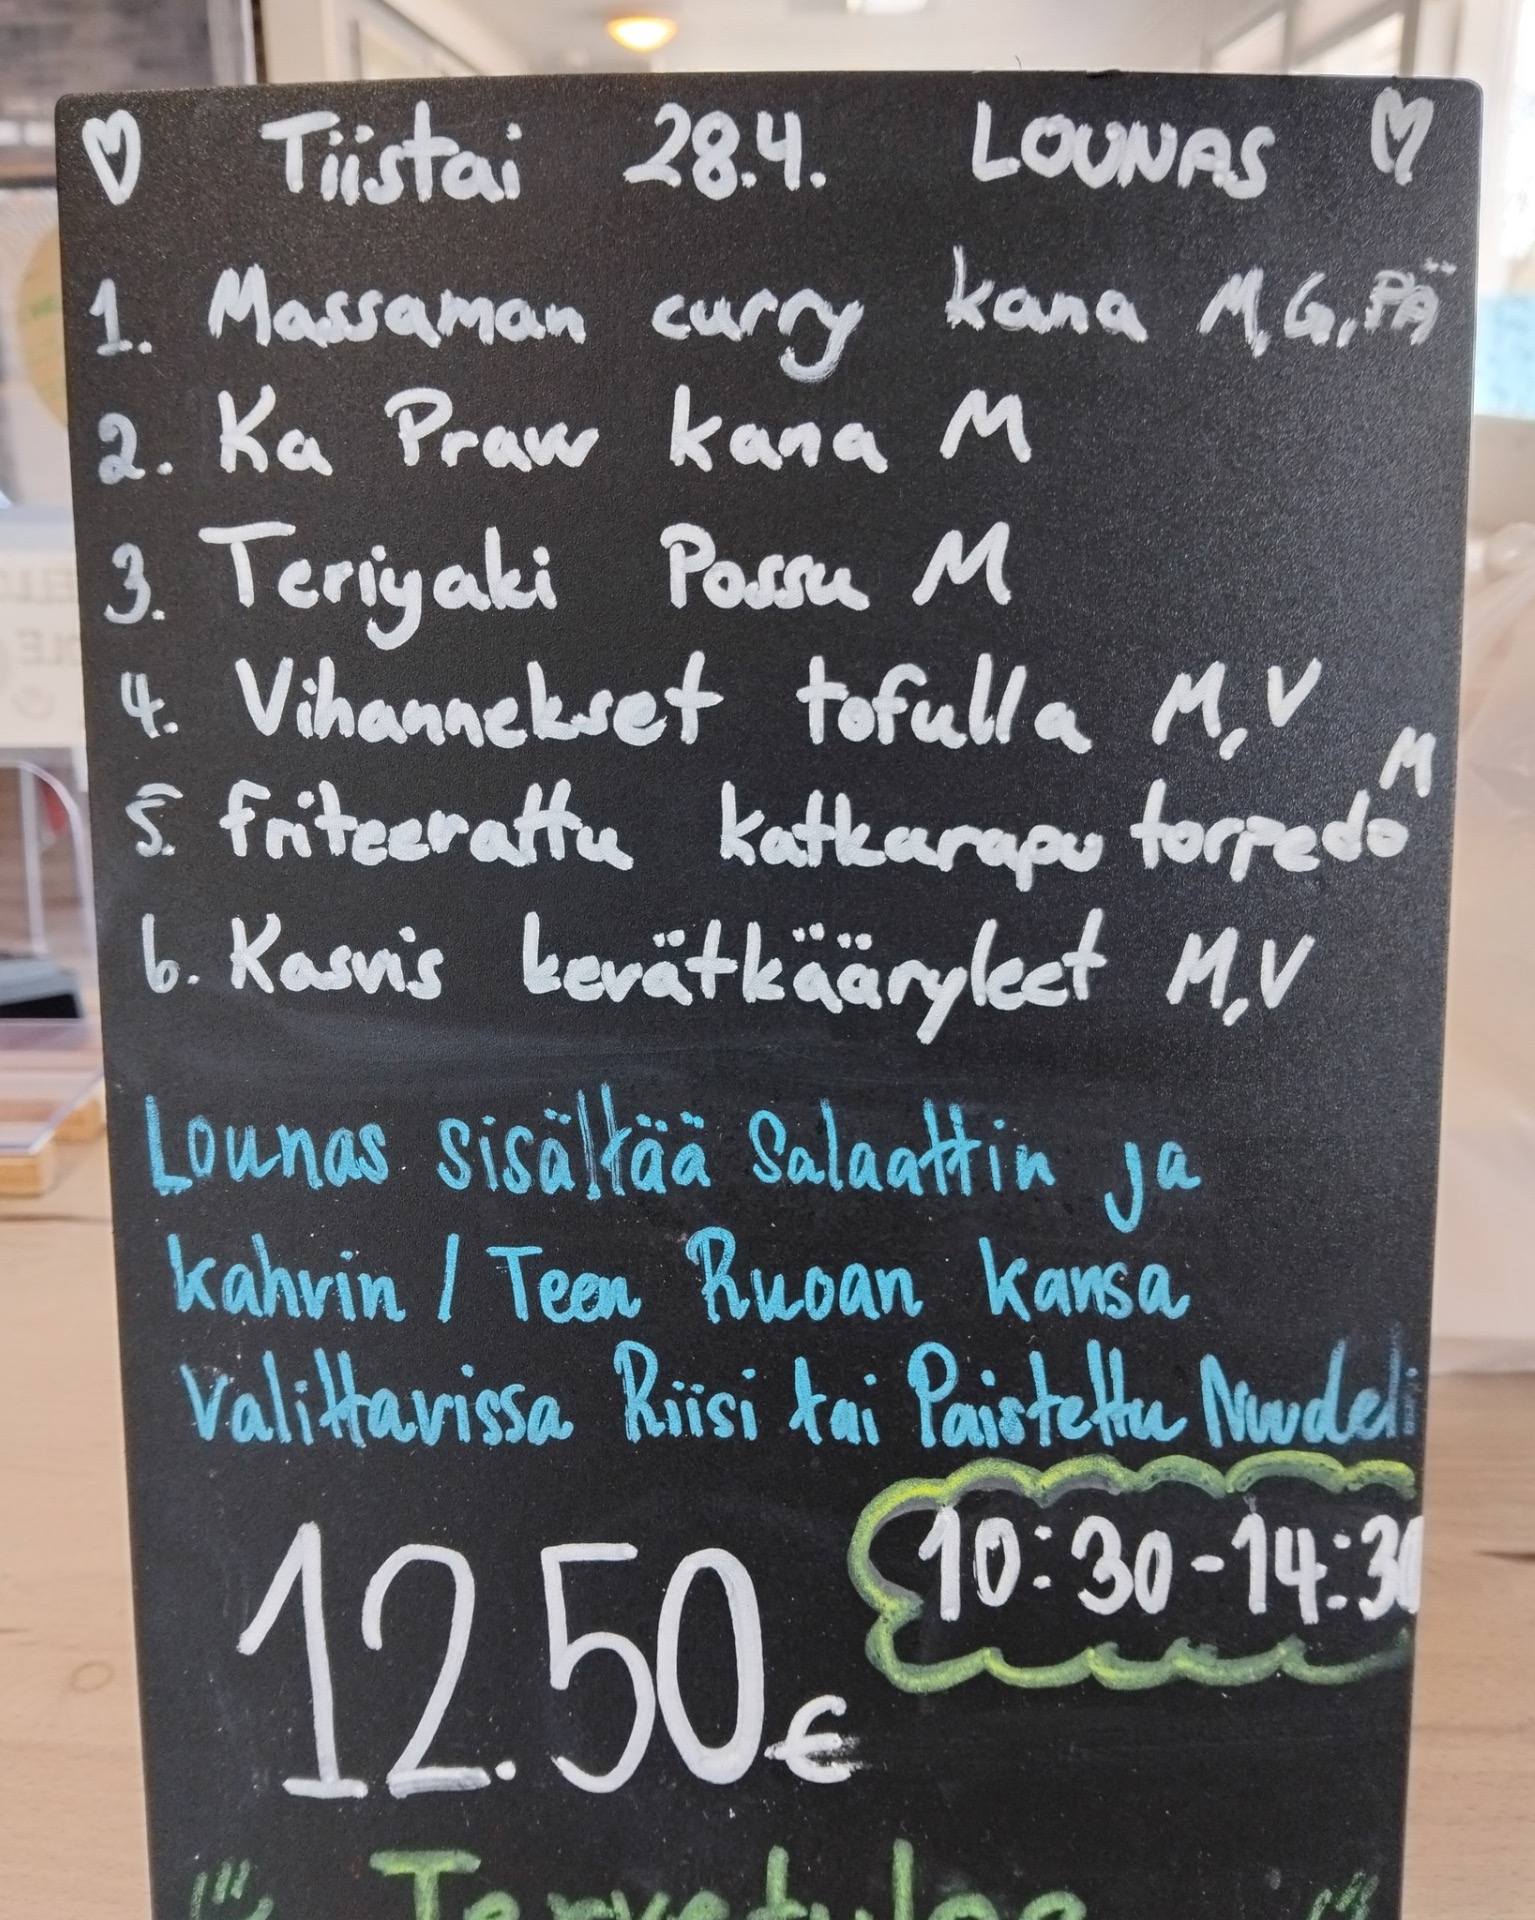 ♡ Tiistai 28.4. LOUNAS ♡
1. Massaman curry kana M, G, PÄ
2. Ka Praw kana M
3. Teriyaki Possu M
4. Vihannekset tofulla M, V
5. friteerattu katkarapu torpedo M
6. Kasvis kevätkääryleet M, V
Lounas sisältää Salaattin ja
kahvin / Teen Ruoan kansa
Valittavissa Riisi tai Paistettu Nuudeli
10:30-14:30
12.50€
Tervetuloa